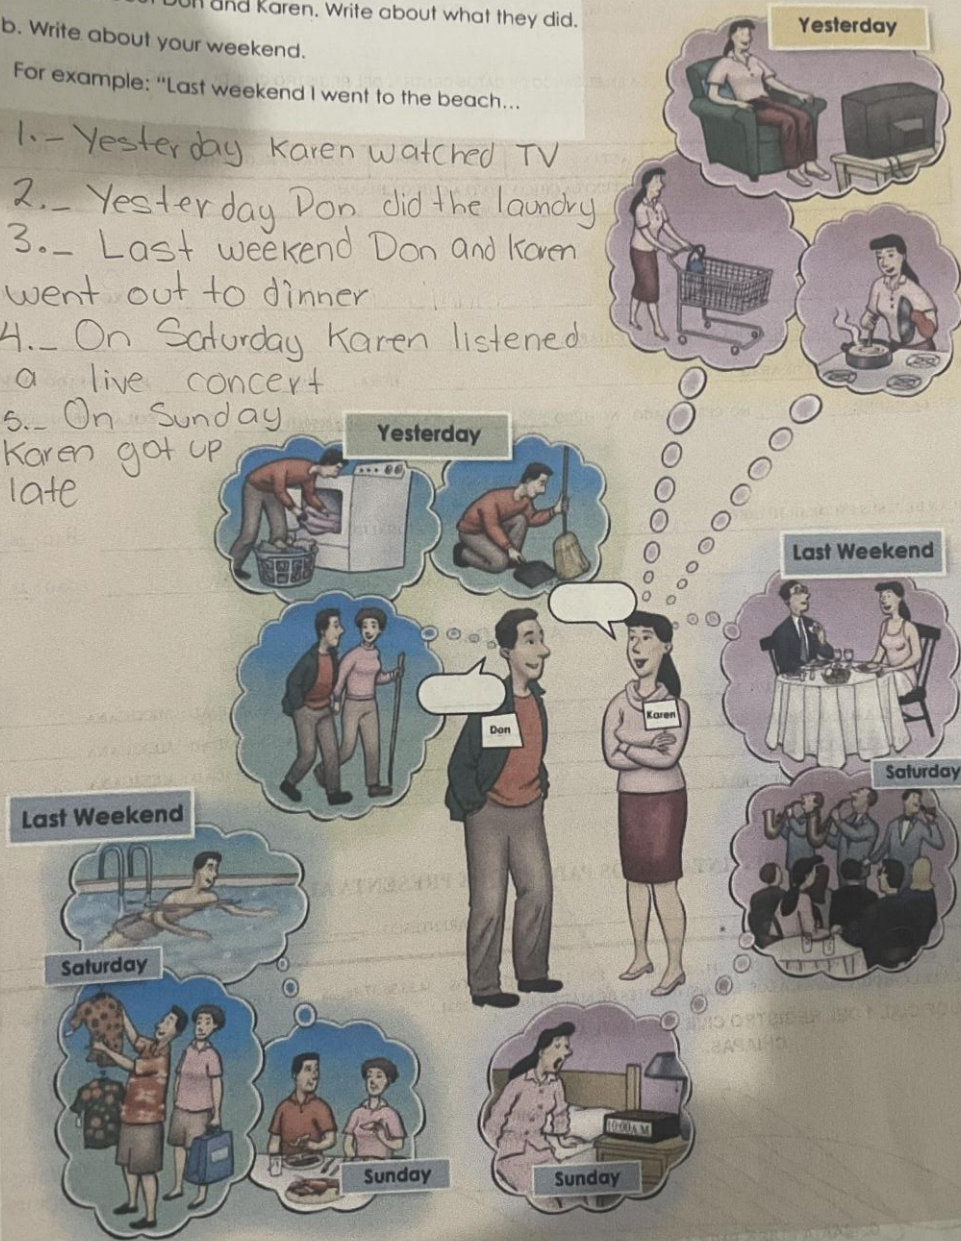 Don and Karen. Write about what they did.
b. Write about your weekend.
For example: "Last weekend I went to the beach...
1.- Yesterday Karen watched TV
2.- Yesterday Don did the laundry
3.- Last weekend Don and Karen
went out to dinner
4.- On Saturday Karen listened
a live concert
5.- On Sunday
Karen got up
late
Yesterday
Yesterday
Last Weekend
Don
Karen
Saturday
Last Weekend
Saturday
Sunday
10:00 A.M.
Sunday